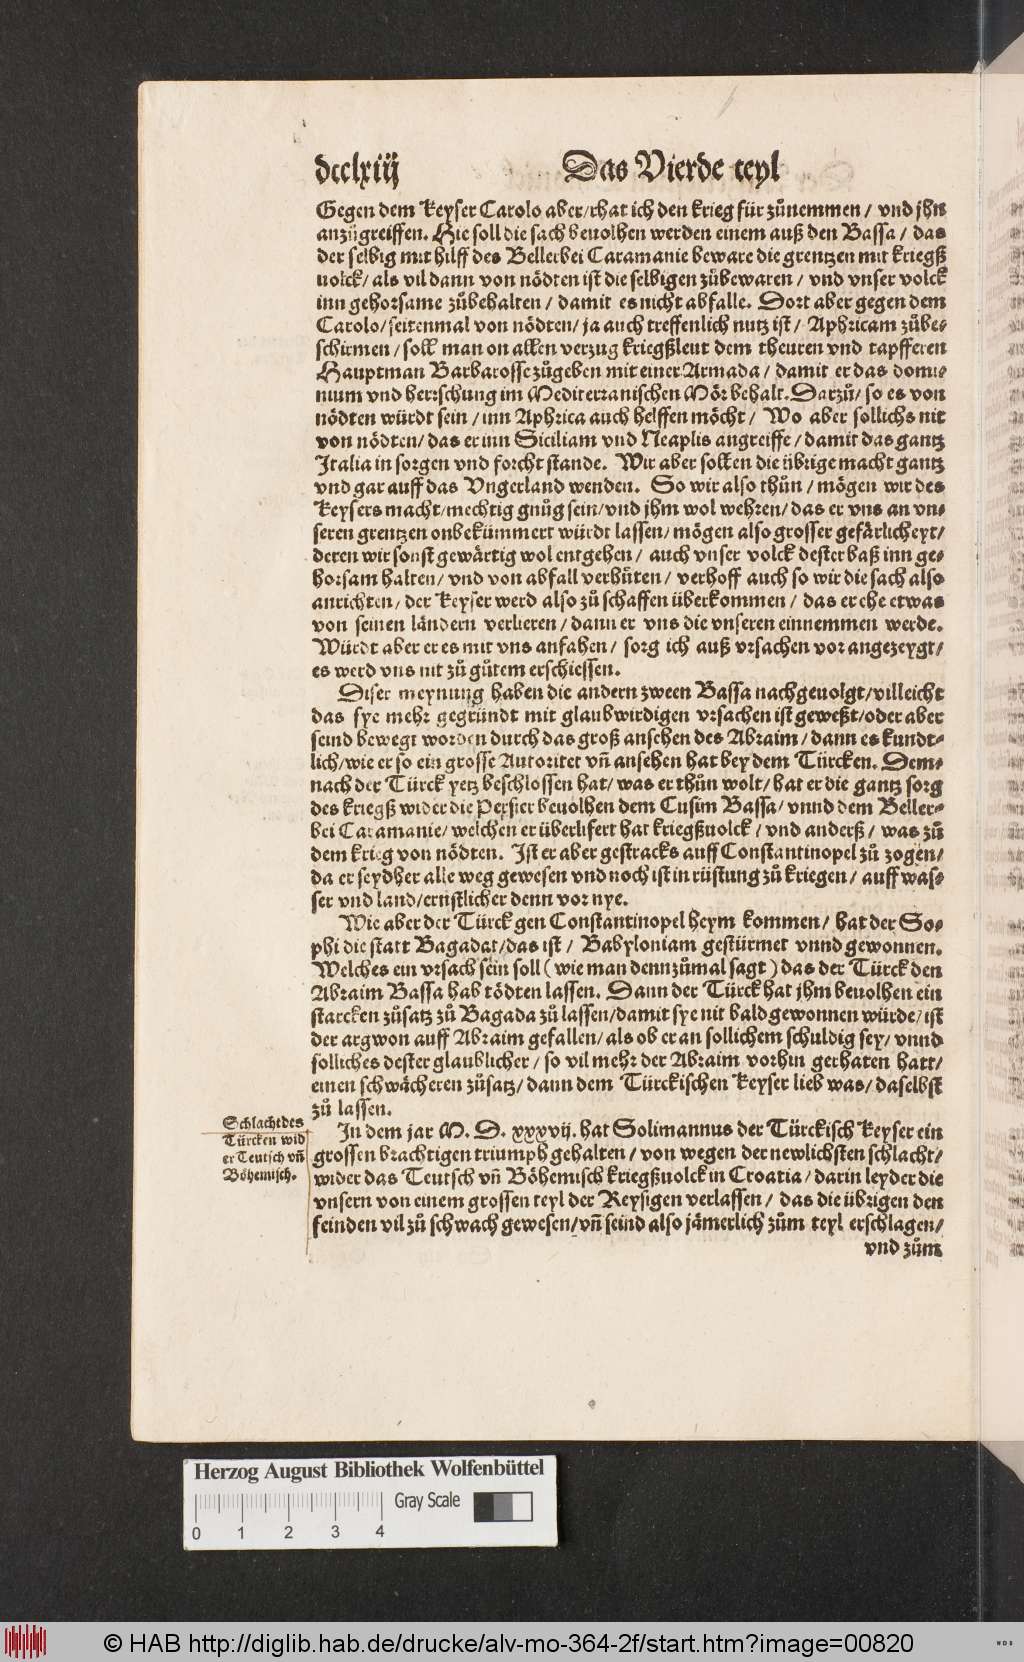 dcclxiij Das Vierde teyl
Gegen dem Keyser Carolo aber/rhat ich den krieg für zůnemmen/ vnd jhn
anzůgreiffen. Hie soll die sach beuolhen werden einem auß den Bassa/ das
der selbig mit hilff des Bellerbei Caramanie beware die grentzen mit kriegß
uolck/ als vil dann von nödten ist die selbigen zůbewaren/ vnd vnser volck
inn gehorsame zůbehalten/ damit es nicht abfalle. Dort aber gegen dem
Carolo/seitenmal von nödten/ja auch treffenlich nutz ist/ Aphricam zůbe-
schirmen/soll man on allen verzug kriegßleut dem theuren vnd tapfferen
Hauptman Barbarosse zůgeben mit einer Armada/ damit er das domi-
nium vnd herrschung im Mediterranischen Mör behalt. Darzů/ so es von
nödten würdt sein/ inn Aphrica auch helffen möcht/ Wo aber sollichs nit
von nödten/das er inn Siciliam vnd Neaplis angreiffe/damit das gantz
Italia in sorgen vnd forcht stande. Wir aber sollen die übrige macht gantz
vnd gar auff das Vngerland wenden. So wir also thůn/ mögen wir des
Keysers macht/mechtig gnůg sein/vnd jhm wol wehren/das er vns an vn-
seren grentzen onbekümmert würdt lassen/mögen also grosser gefärlicheyt/
deren wir sonst gewärtig wol entgehen/ auch vnser volck dester baß inn ge-
horsam halten/vnd von abfall verhüten/ verhoff auch so wir die sach also
anrichten/der Keyser werd also zů schaffen überkommen/ das er ehe etwas
von seinen ländern verlieren/dann er vns die vnseren einnemmen werde.
Würdt aber er es mit vns anfahen/ sorg ich auß vrsachen vor angezeygt/
es werd vns nit zů gůtem erschiessen.
Diser meynung haben die andern zween Bassa nachgeuolgt/villeicht
das sye mehr gegründt mit glaubwirdigen vrsachen ist geweßt/oder aber
seind bewegt worden durch das groß ansehen des Abraim/dann es kundt-
lich/wie er so ein grosse Autoritet vñ ansehen hat bey dem Türcken. Dem-
nach der Türck yetz beschlossen hat/was er thůn wolt/hat er die gantz sorg
des kriegß wider die Persier beuolhen dem Cusim Bassa/vnnd dem Beller-
bei Caramanie/welchen er überlifert hat kriegßuolck/vnd anderß/ was zů
dem krieg von nödten. Ist er aber gestracks auff Constantinopel zů zogen/
da er seydher alle weg gewesen vnd noch ist in rüstung zů kriegen/ auff was-
ser vnd land/ernstlicher denn vor nye.
Wie aber der Türck gen Constantinopel heym kommen/ hat der So-
phi die statt Bagadat/das ist/ Babyloniam gestürmet vnnd gewonnen.
Welches ein vrsach sein soll (wie man dennzůmal sagt) das der Türck den
Abraim Bassa hab tödten lassen. Dann der Türck hat jhm beuolhen ein
starcken zůsatz zů Bagada zů lassen/damit sye nit bald gewonnen würde/ist
der argwon auff Abraim gefallen/als ob er an sollichem schuldig sey/vnnd
solliches dester glaublicher/so vil mehr der Abraim vorhin gerhaten hatt/
einen schwächeren zůsatz/dann dem Türckischen Keyser lieb was/daselbst
zů lassen.
Schlacht des
Türcken wid
er Teutsch vñ
Böhemisch.
In dem jar M. D. xxxvij. hat Solimannus der Türckisch Keyser ein
grossen brachtigen triumph gehalten/von wegen der newlichsten schlacht/
wider das Teutsch vñ Böhemisch kriegßuolck in Croatia/darin leyder die
vnsern von einem grossen teyl der Reysigen verlassen/ das die übrigen den
feinden vil zů schwach gewesen/vñ seind also jämerlich zům teyl erschlagen/
vnd zům
Herzog August Bibliothek Wolfenbüttel
Gray Scale
0 1 2 3 4
© HAB http://diglib.hab.de/drucke/alv-mo-364-2f/start.htm?image=00820